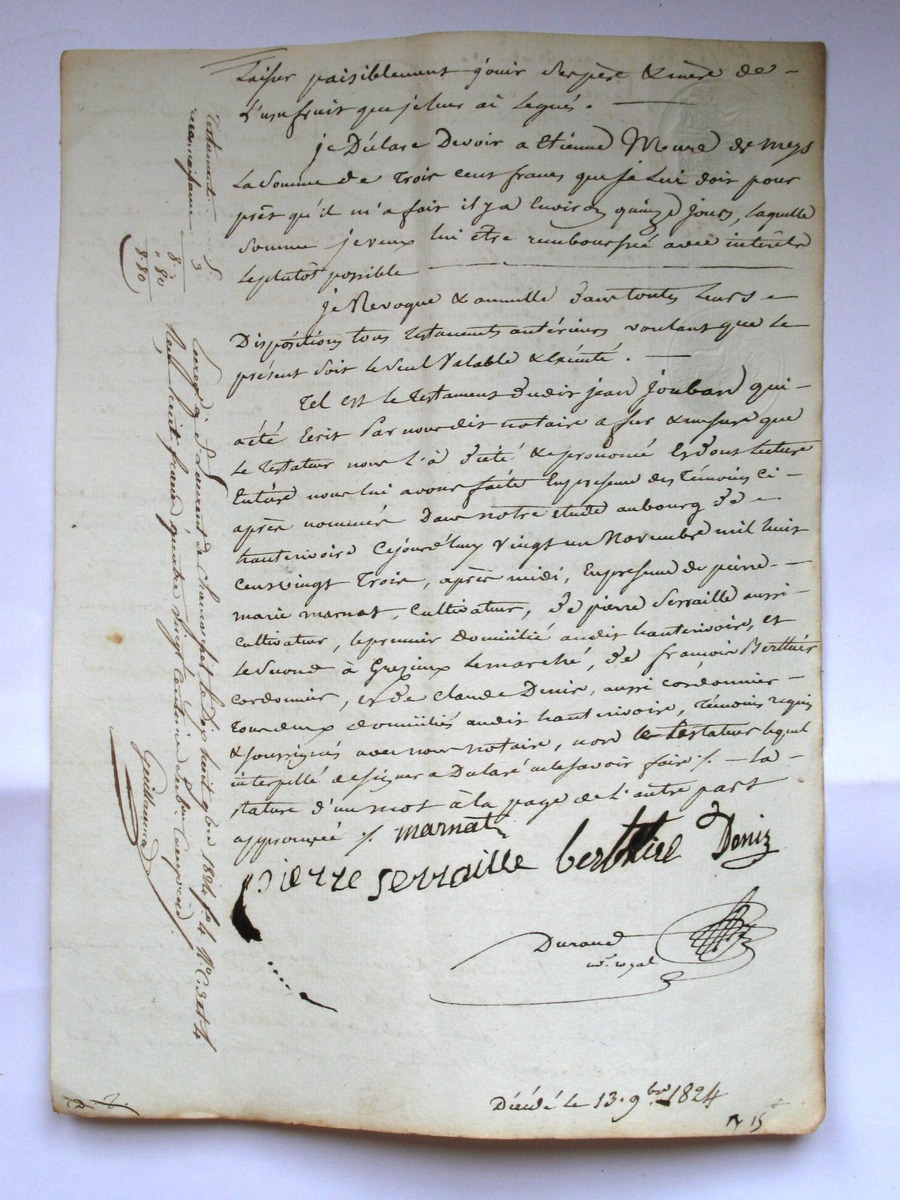 Laisser paisiblement jouir ses père & mère de -
L'usufruit que je leur ai Legués. -
je Déclare Devoir a Etienne Moure de meys
La Somme de Trois cent francs que je Lui dois pour
prêt qu'il m'a fait il y a Environ quinze jours, laquelle
Somme je veux lui être remboursée avec intérêts
Le plutôt possible
je Revoque & annulle dans toutes Leurs -
Dispositions tous testaments antérieurs voulant que Le
présent Soit Le Seul Valable & Exécuté. -
Tel est Le testament dudit jean jouban qui -
a été Ecrit Par nous dit notaire a fur & mesure que
Le testateur nous l'a dicté & prononcé Et dont Lecture
Entière nous lui avons faite En presence des Témoins ci -
après nommés Dans notre étude au bourg de -
hauterivoire Cejourd'huy Vingt un Novembre mil huit
Cent vingt Trois, après midi, En presence de pierre -
marie marnat, Cultivateur, de pierre Serraille aussi -
Cultivateur, le premier domicilié audit hauterivoire, et
Le Second à Grezieux Lemarché, de francois Berthier
Cordonnier, et de claude Denis, aussi cordonnier -
Tous deux domiciliés audit hauterivoire, Témoins requis
& soussignés avec nous notaire, non le testateur lequel
interpellé de signer a Declaré ne le savoir faire ./. - La -
rature d'un mot à la page de l'autre part
approuvée ./. marnat
pierre serraille berthie Deniz
Durand
nre. royal
Décédé le 13. 9bre 1824
Testament . . . 5
reconnaissance 3
8.
" 80
8.80
Enregé. à St Laurent de Chamousset le Dix huit 9bre 1824 fo. 4 Vo. C. 3 et 4
Reçu huit francs quatre vingt Centimes Subvon Comprise
Guillaume